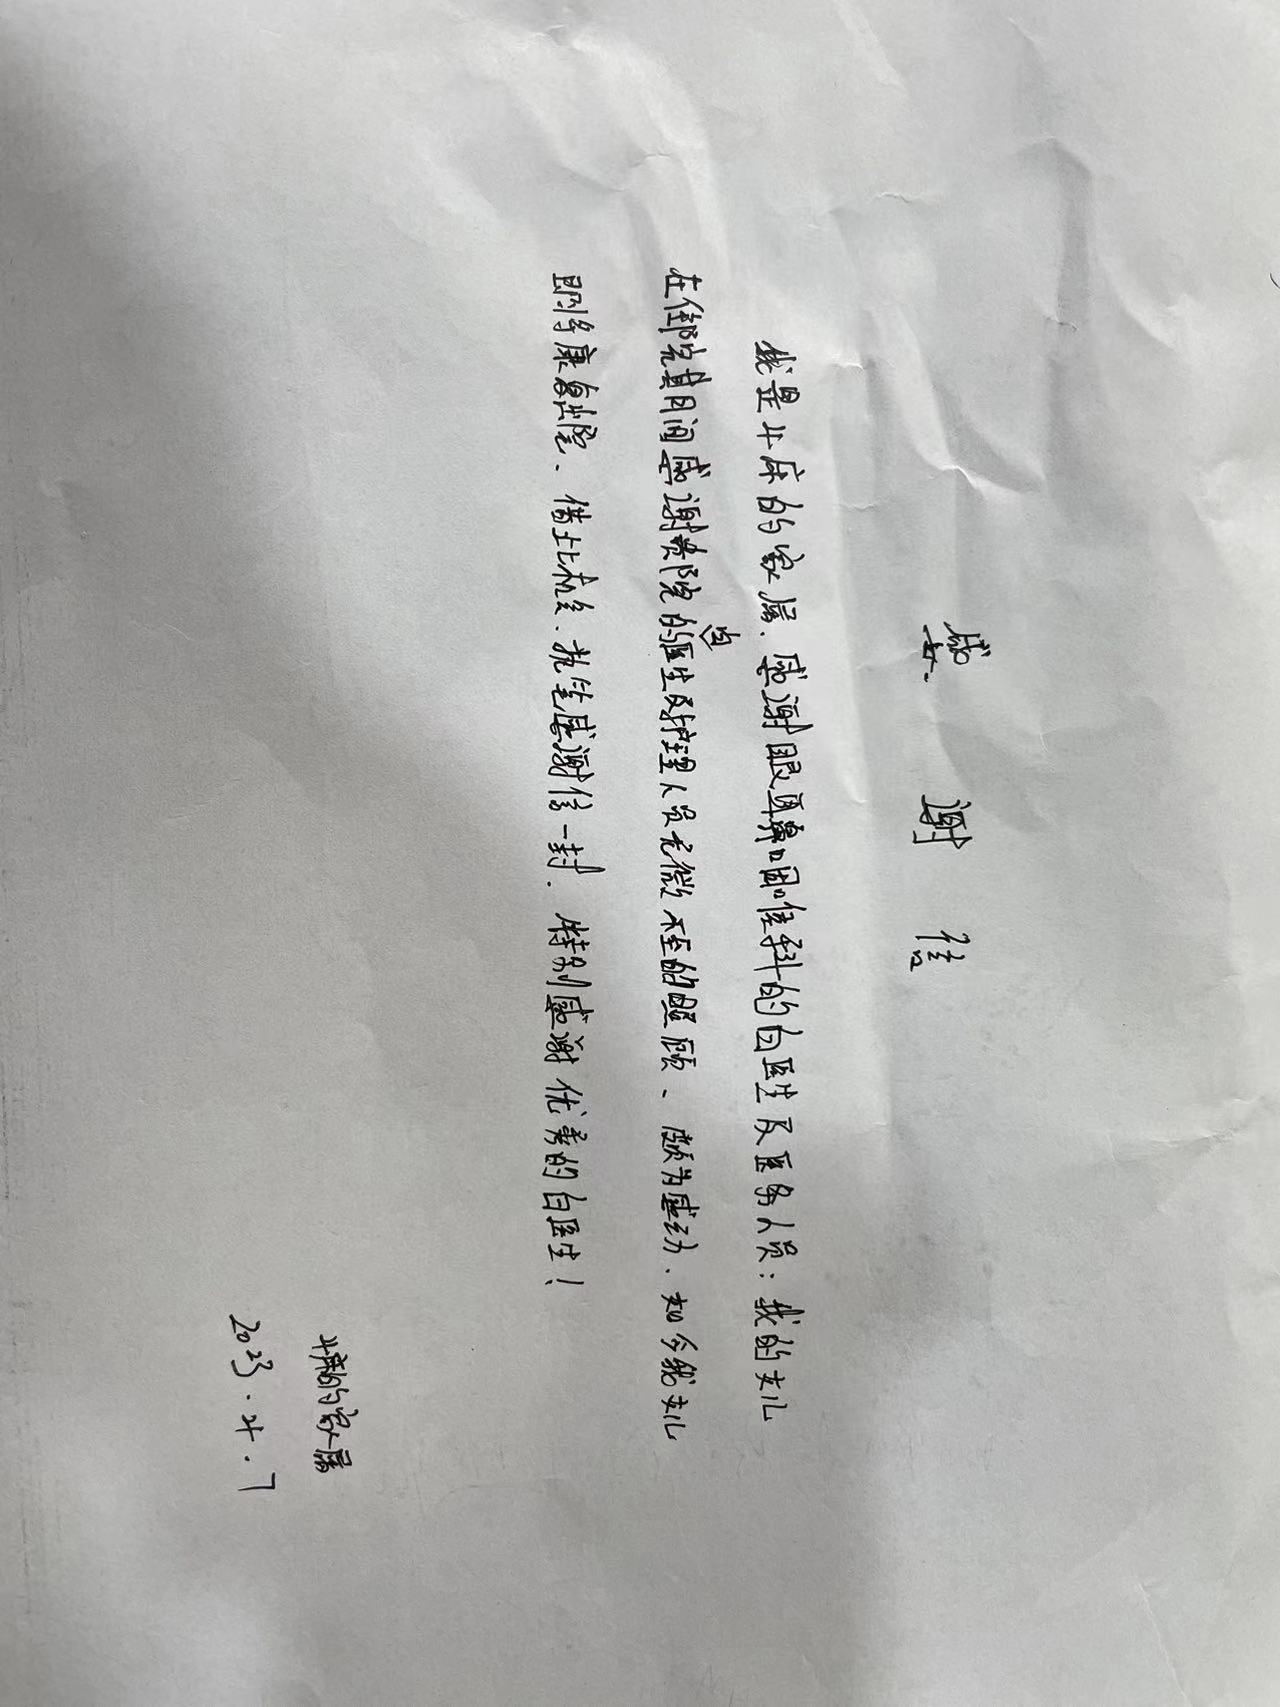 感谢信
我是4床的家属、感谢眼耳鼻口咽喉科的白医生及医务人员：我的女儿
在住院其月间感谢贵院的白医生及护理人员无微不至的照顾、颇为感动、如今我女儿
即将康复出院、借此机会、执笔感谢信一封、特别感谢优秀的白医生！
4床的家属
2023.4.7